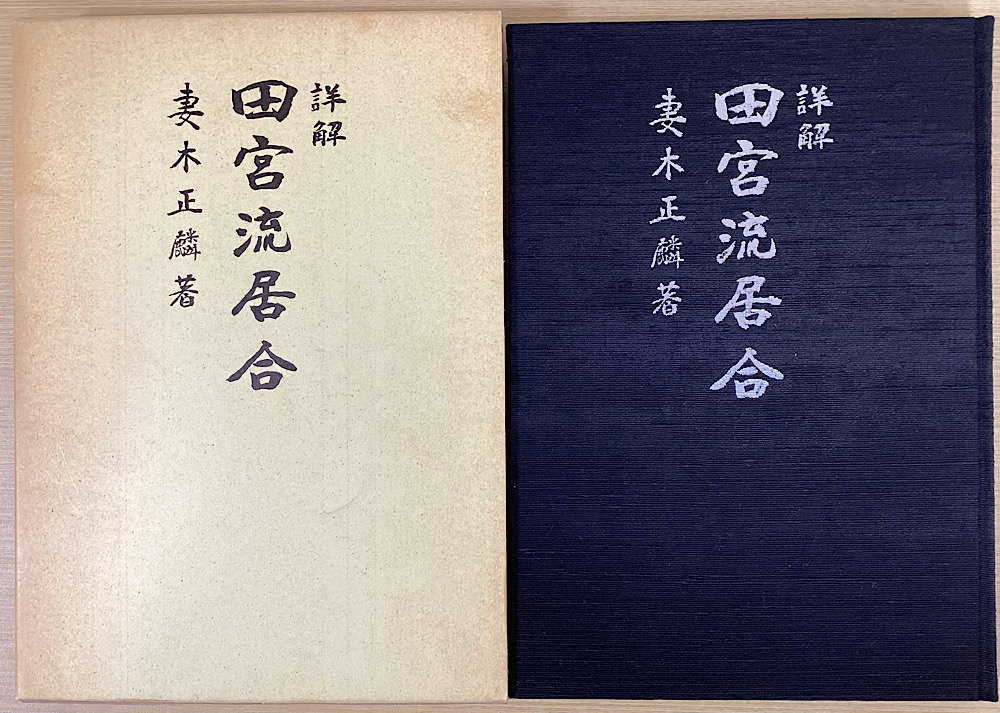 詳解
田宮流居合
妻木正麟著
詳解
田宮流居合
妻木正麟著